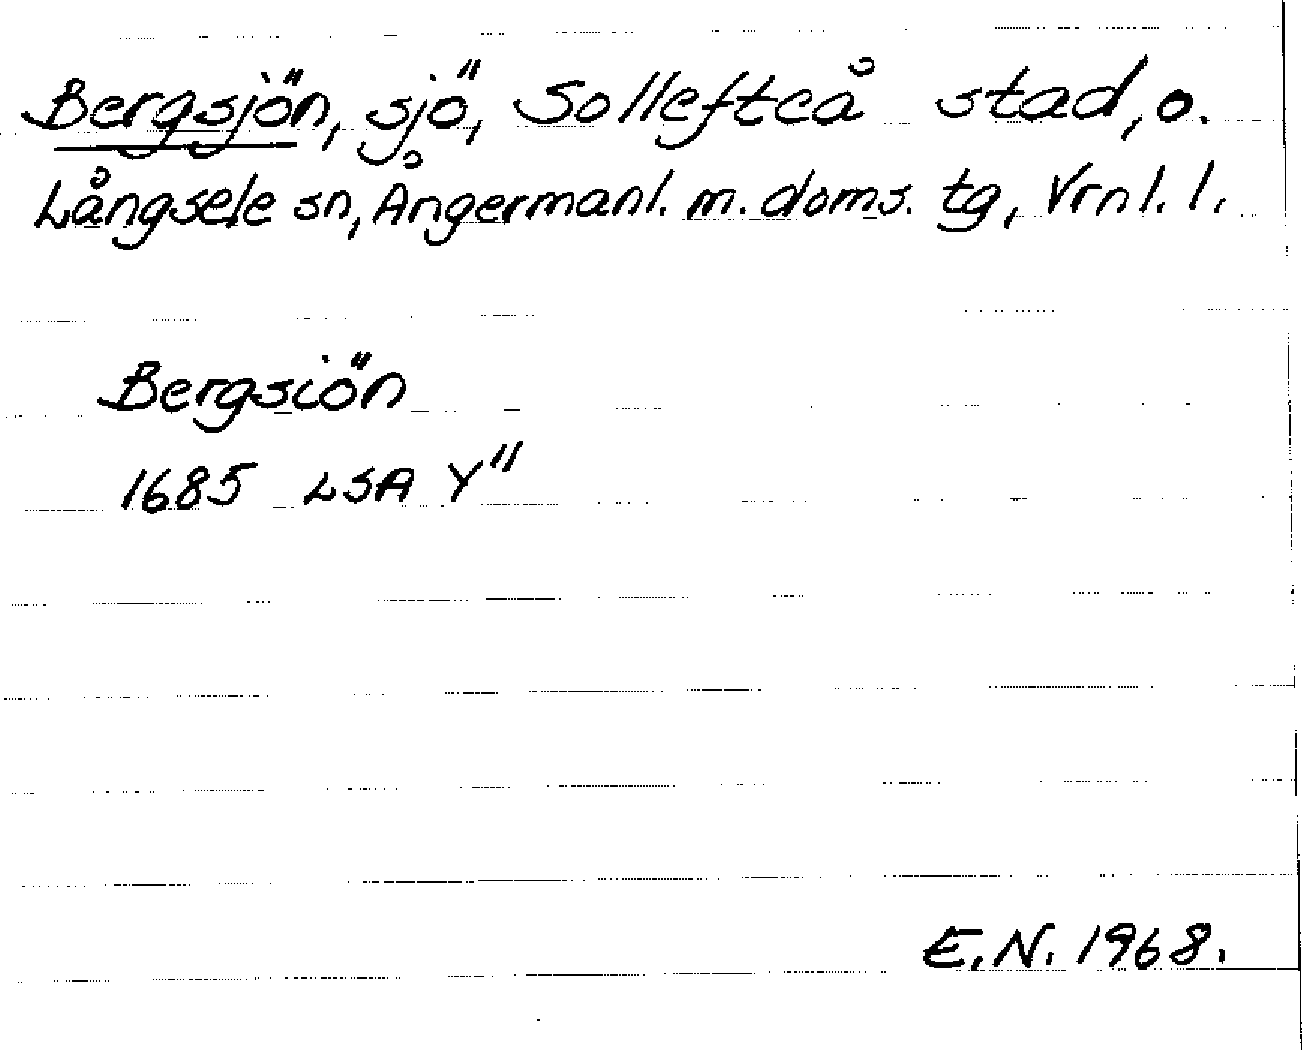 Bergsjön, sjö, Sollefteå stad, o.
Långsele sn, Ångermanl. m. doms. tg, Vrnl. l.
Bergsiön
1685 LSA Y"
E.N. 1968.